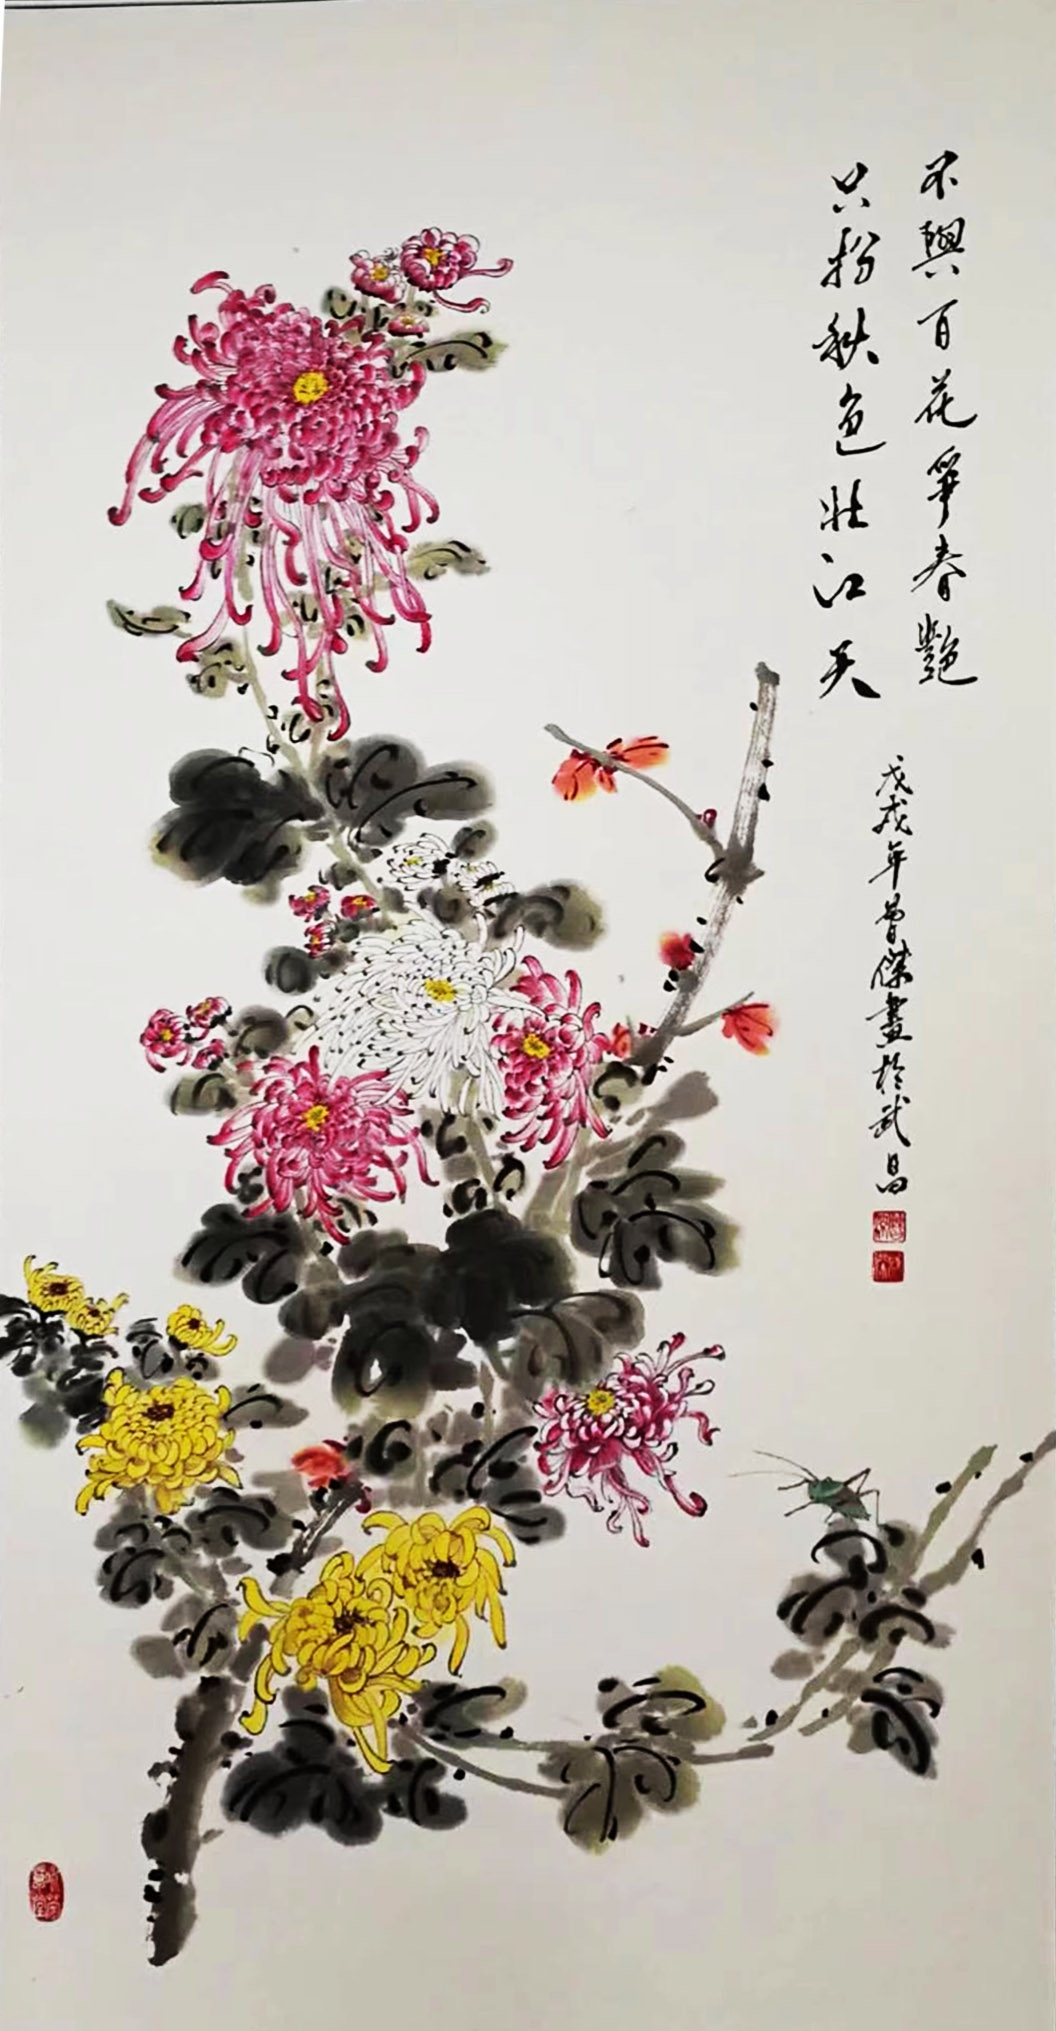 不與百花爭春艷
只粉秋色壯江天
戊戌年曾傑畫於武昌